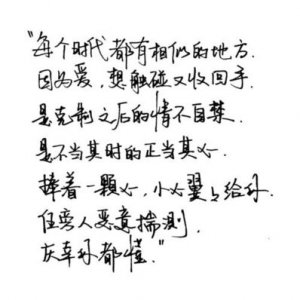 "每个时代都有相似的地方.
因为爱,想触碰又收回手.
是克制之后的情不自禁.
是不当其时的正当其心.
捧着一颗心,小心翼々给你.
任旁人恶意揣测,
庆幸你都懂."